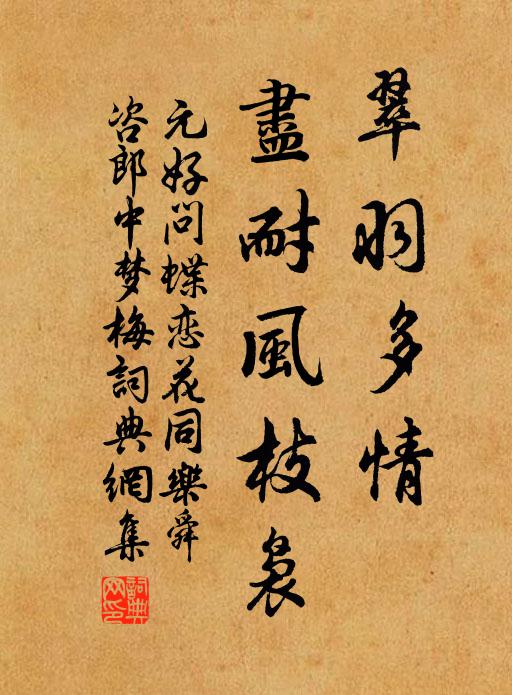 翠羽多情
盡耐風枝裊
元好問蝶恋花同樂舜
咨郎中梦梅詞典網集
詞典网印